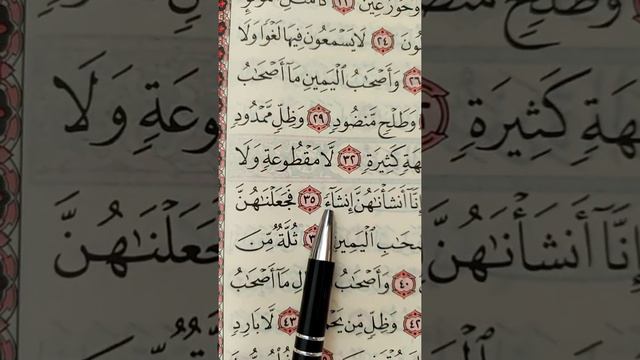 وَحُورٌ عِينٌ
لَا يَسْمَعُونَ فِيهَا لَغْوًا وَلَا ٢٤
٢٦ وَأَصْحَٰبُ ٱلْيَمِينِ مَآ أَصْحَٰبُ
وَطَلْحٍ مَّنضُودٍ ٢٩ وَظِلٍّ مَّمْدُودٍ
هَةٍ كَثِيرَةٍ ٣٢ لَّا مَقْطُوعَةٍ وَلَا
إِنَّآ أَنشَأْنَٰهُنَّ إِنشَآءً ٣٥ فَجَعَلْنَٰهُنَّ
صْحَٰبِ ٱلْيَمِينِ ثُلَّةٌ مِّنَ
٤٠ وَأَصْحَٰبُ مَآ أَصْحَٰبُ
٤٢ وَظِلٍّ مِّن ٤٣ لَّا بَارِدٍ